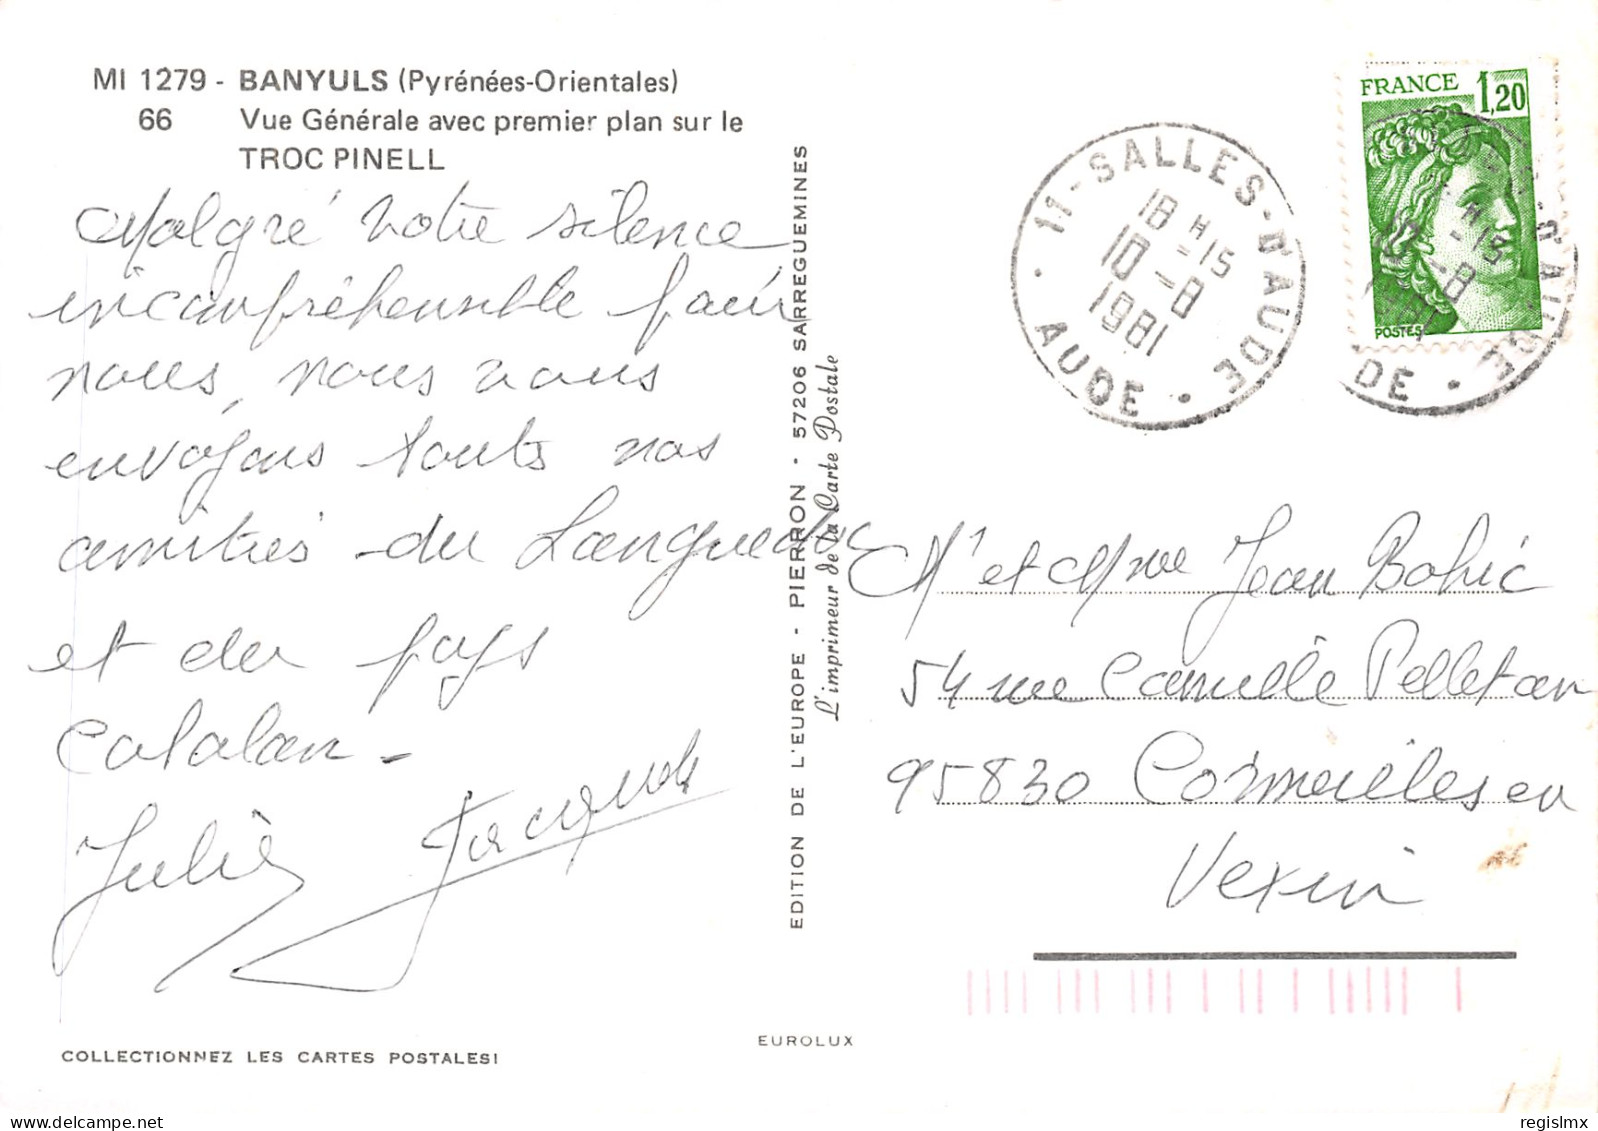 MI 1279 - BANYULS (Pyrénées-Orientales)
66 Vue Générale avec premier plan sur le
TROC PINELL
Malgré votre silence
incompréhensible pour
nous, nous vous
envoyons toutes nos
amitiés du Languedoc
et du pays
Catalan -
Julie Jacques
COLLECTIONNEZ LES CARTES POSTALES!
EDITION DE L'EUROPE - PIERRON - 57206 SARREGUEMINES
L'imprimeur de la Carte Postale
EUROLUX
11 - SALLES-D'AUDE
18 H - 15
10 - 8
1981
AUDE
FRANCE 1,20
POSTES
Mr et Mme Jean Bohic
54 rue Camille Pelletan
95830 Cormeilles en
Vexin
regislmx